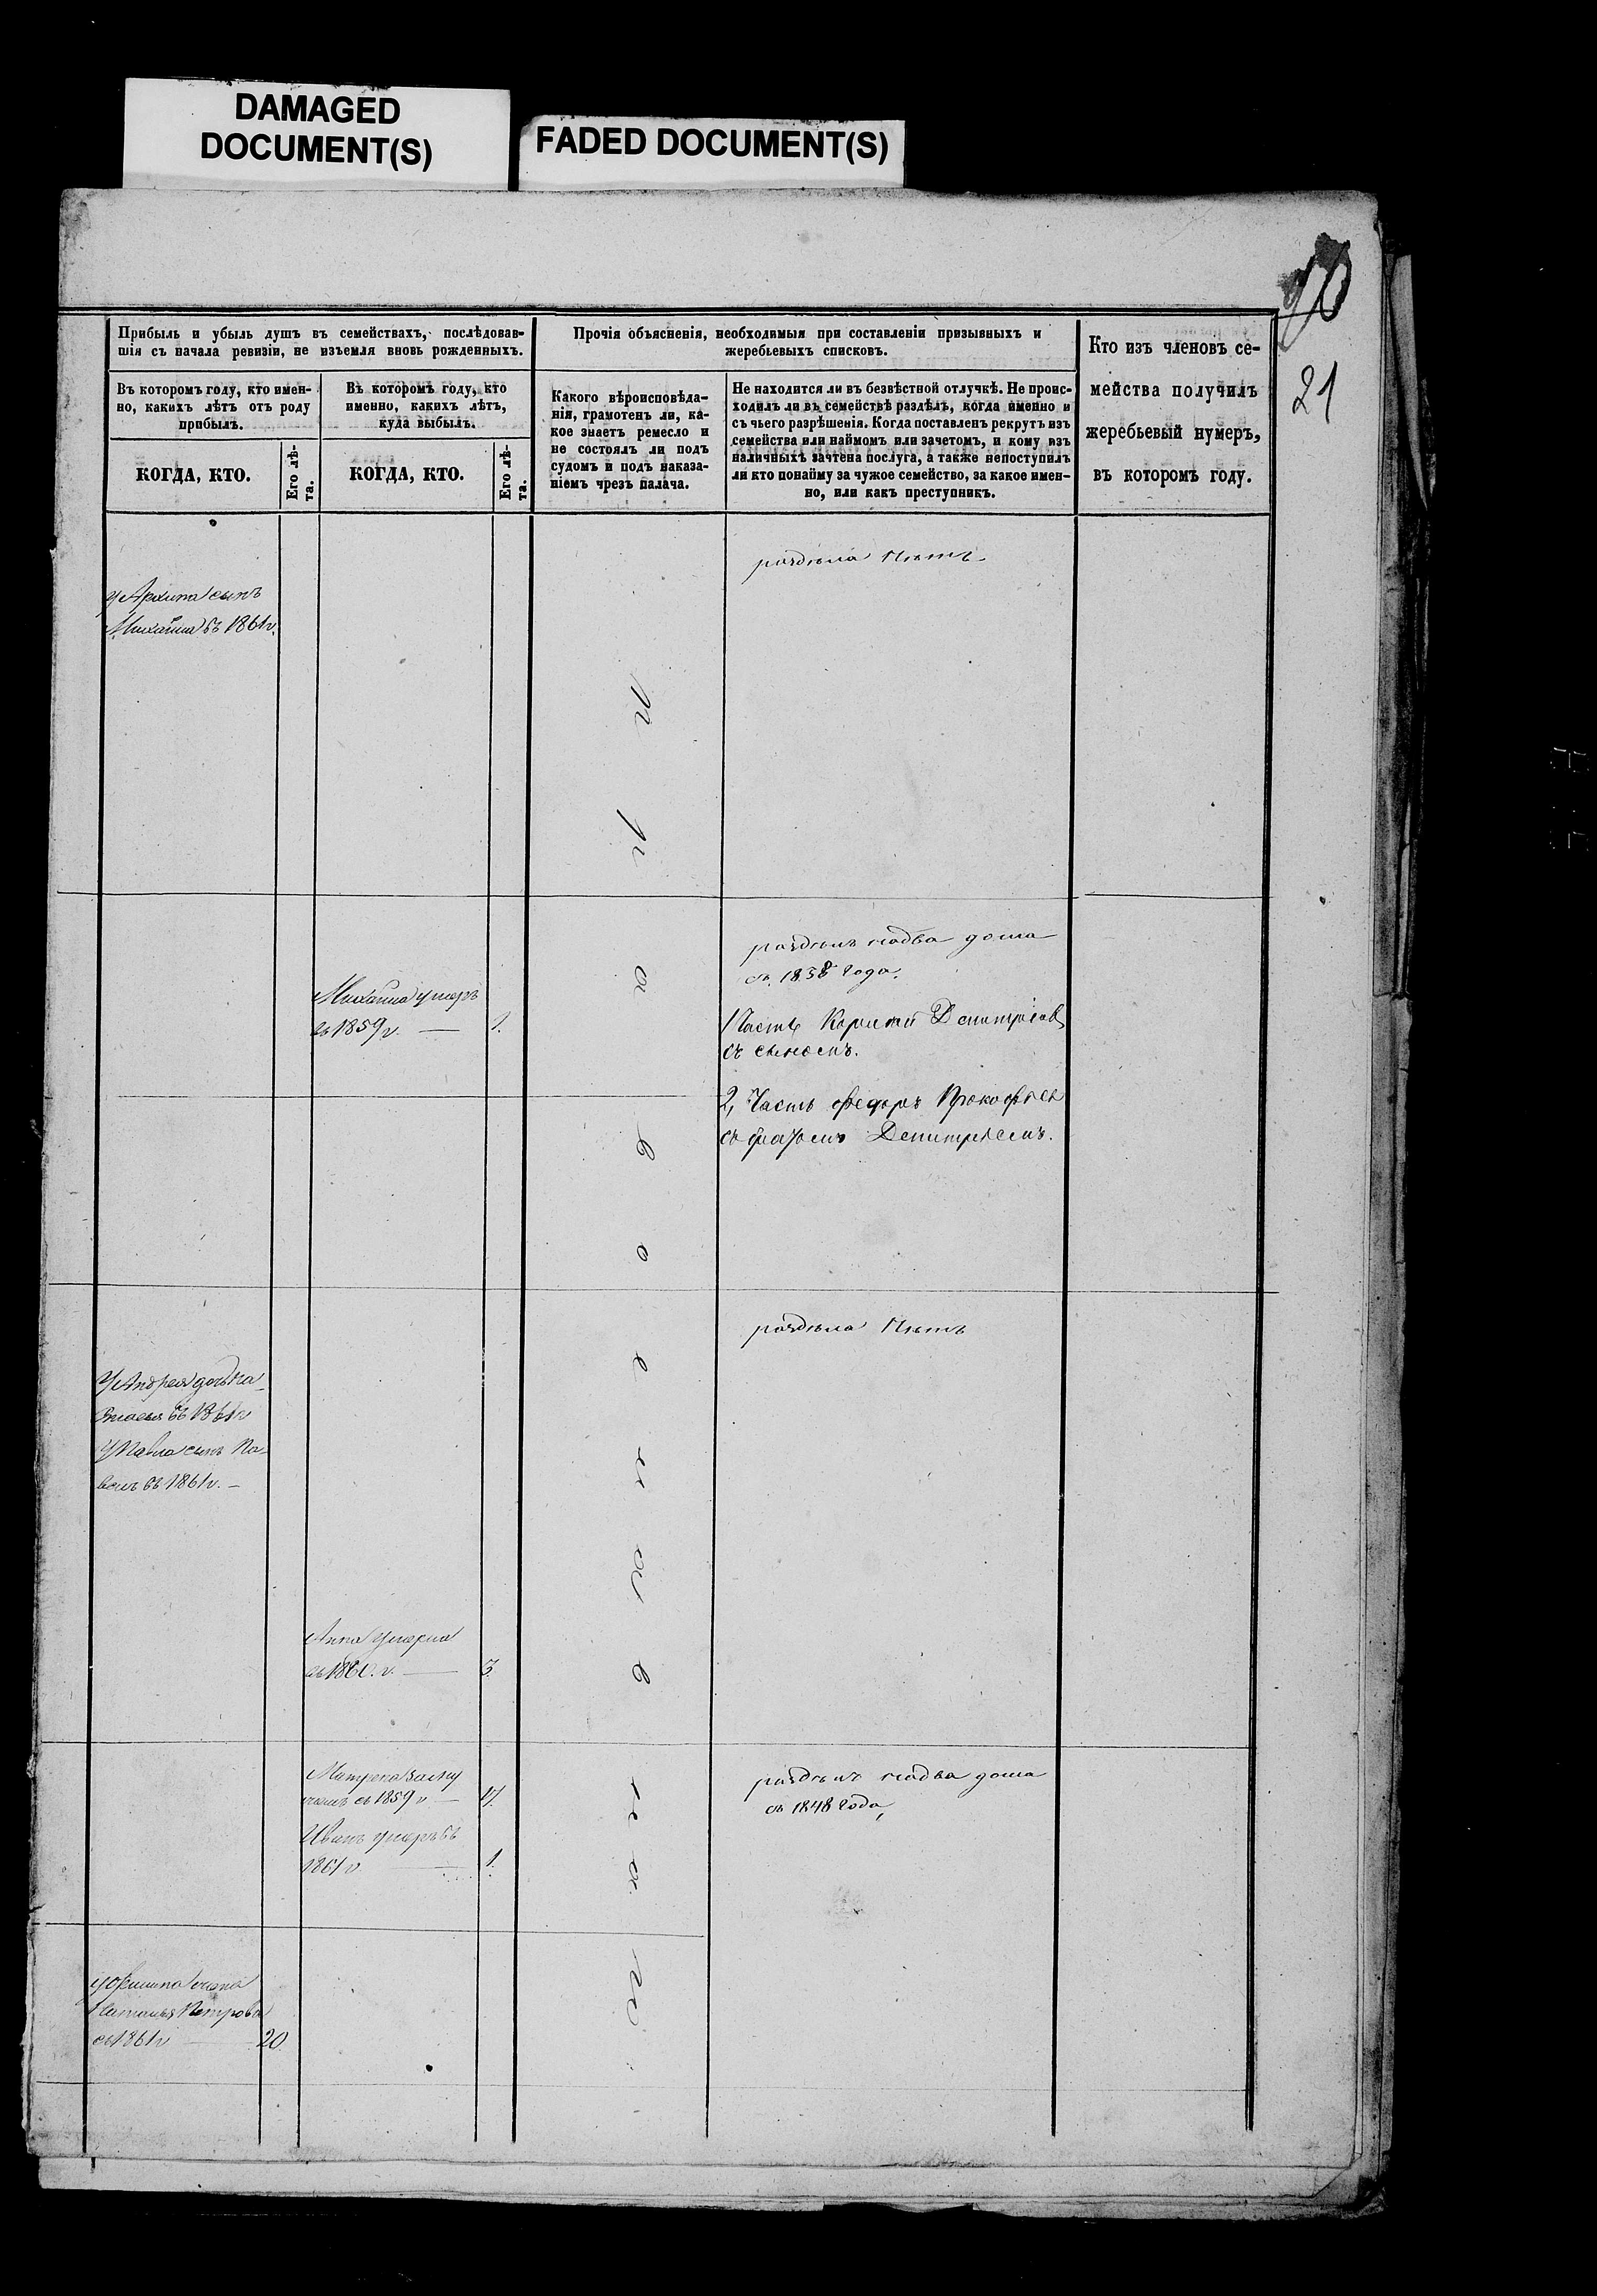 DAMAGED
DOCUMENT(S)
FADED DOCUMENT(S)
21
Прибыль и убыль душъ въ семействахъ, послѣдовав-
шія съ начала ревизіи, не изъемля вновь рожденныхъ.
Въ которомъ году, кто имен-
но, какихъ лѣтъ отъ роду
прибылъ.
КОГДА, КТО.
Его лѣ-
та.
Въ которомъ году, кто
именно, какихъ лѣтъ,
куда выбылъ.
КОГДА, КТО.
Его лѣ-
та.
Прочія объясненія, необходимыя при составленіи призывныхъ и
жеребьевыхъ списковъ.
Какого вѣроисповѣда-
нія, грамотенъ ли, ка-
кое знаетъ ремесло и
не состоялъ ли подъ
судомъ и подъ наказа-
ніемъ чрезъ палача.
Не находится ли въ безвѣстной отлучкѣ. Не проис-
ходилъ ли въ семействѣ раздѣлъ, когда именно и
съ чьего разрѣшенія. Когда поставленъ рекрутъ изъ
семейства или наймомъ или зачетомъ, и кому изъ
наличныхъ зачтена послуга, а также непоступилъ
ли кто понайму за чужое семейство, за какое имен-
но, или какъ преступникъ.
Кто изъ членовъ се-
мейства получилъ
жеребьевый нумеръ,
въ которомъ году.
раздѣла Нѣтъ
У Архипа сынъ
Михайла въ 1861 г.
раздѣлъ надва дома
съ 1838 года.
Михайла умеръ
въ 1859 г. — 1.
1 Часть Дмитріев
съ сыномъ.
2, Часть Федоръ Прокофьев
съ братомъ Дмитріемъ.
раздѣла Нѣтъ
У Андрея дочь На-
стасья въ 1861 г
У Павла сынъ Па-
велъ въ 1861 г. –
Анна умерла
въ г. — 3
Матрена
въ 1859 г —
Иванъ умеръ въ
1861 г — 1.
раздѣлъ надва дома
съ 1848 года,
у Филипа жена
Наталья Петрова
въ 1861 г — 20
православнаго